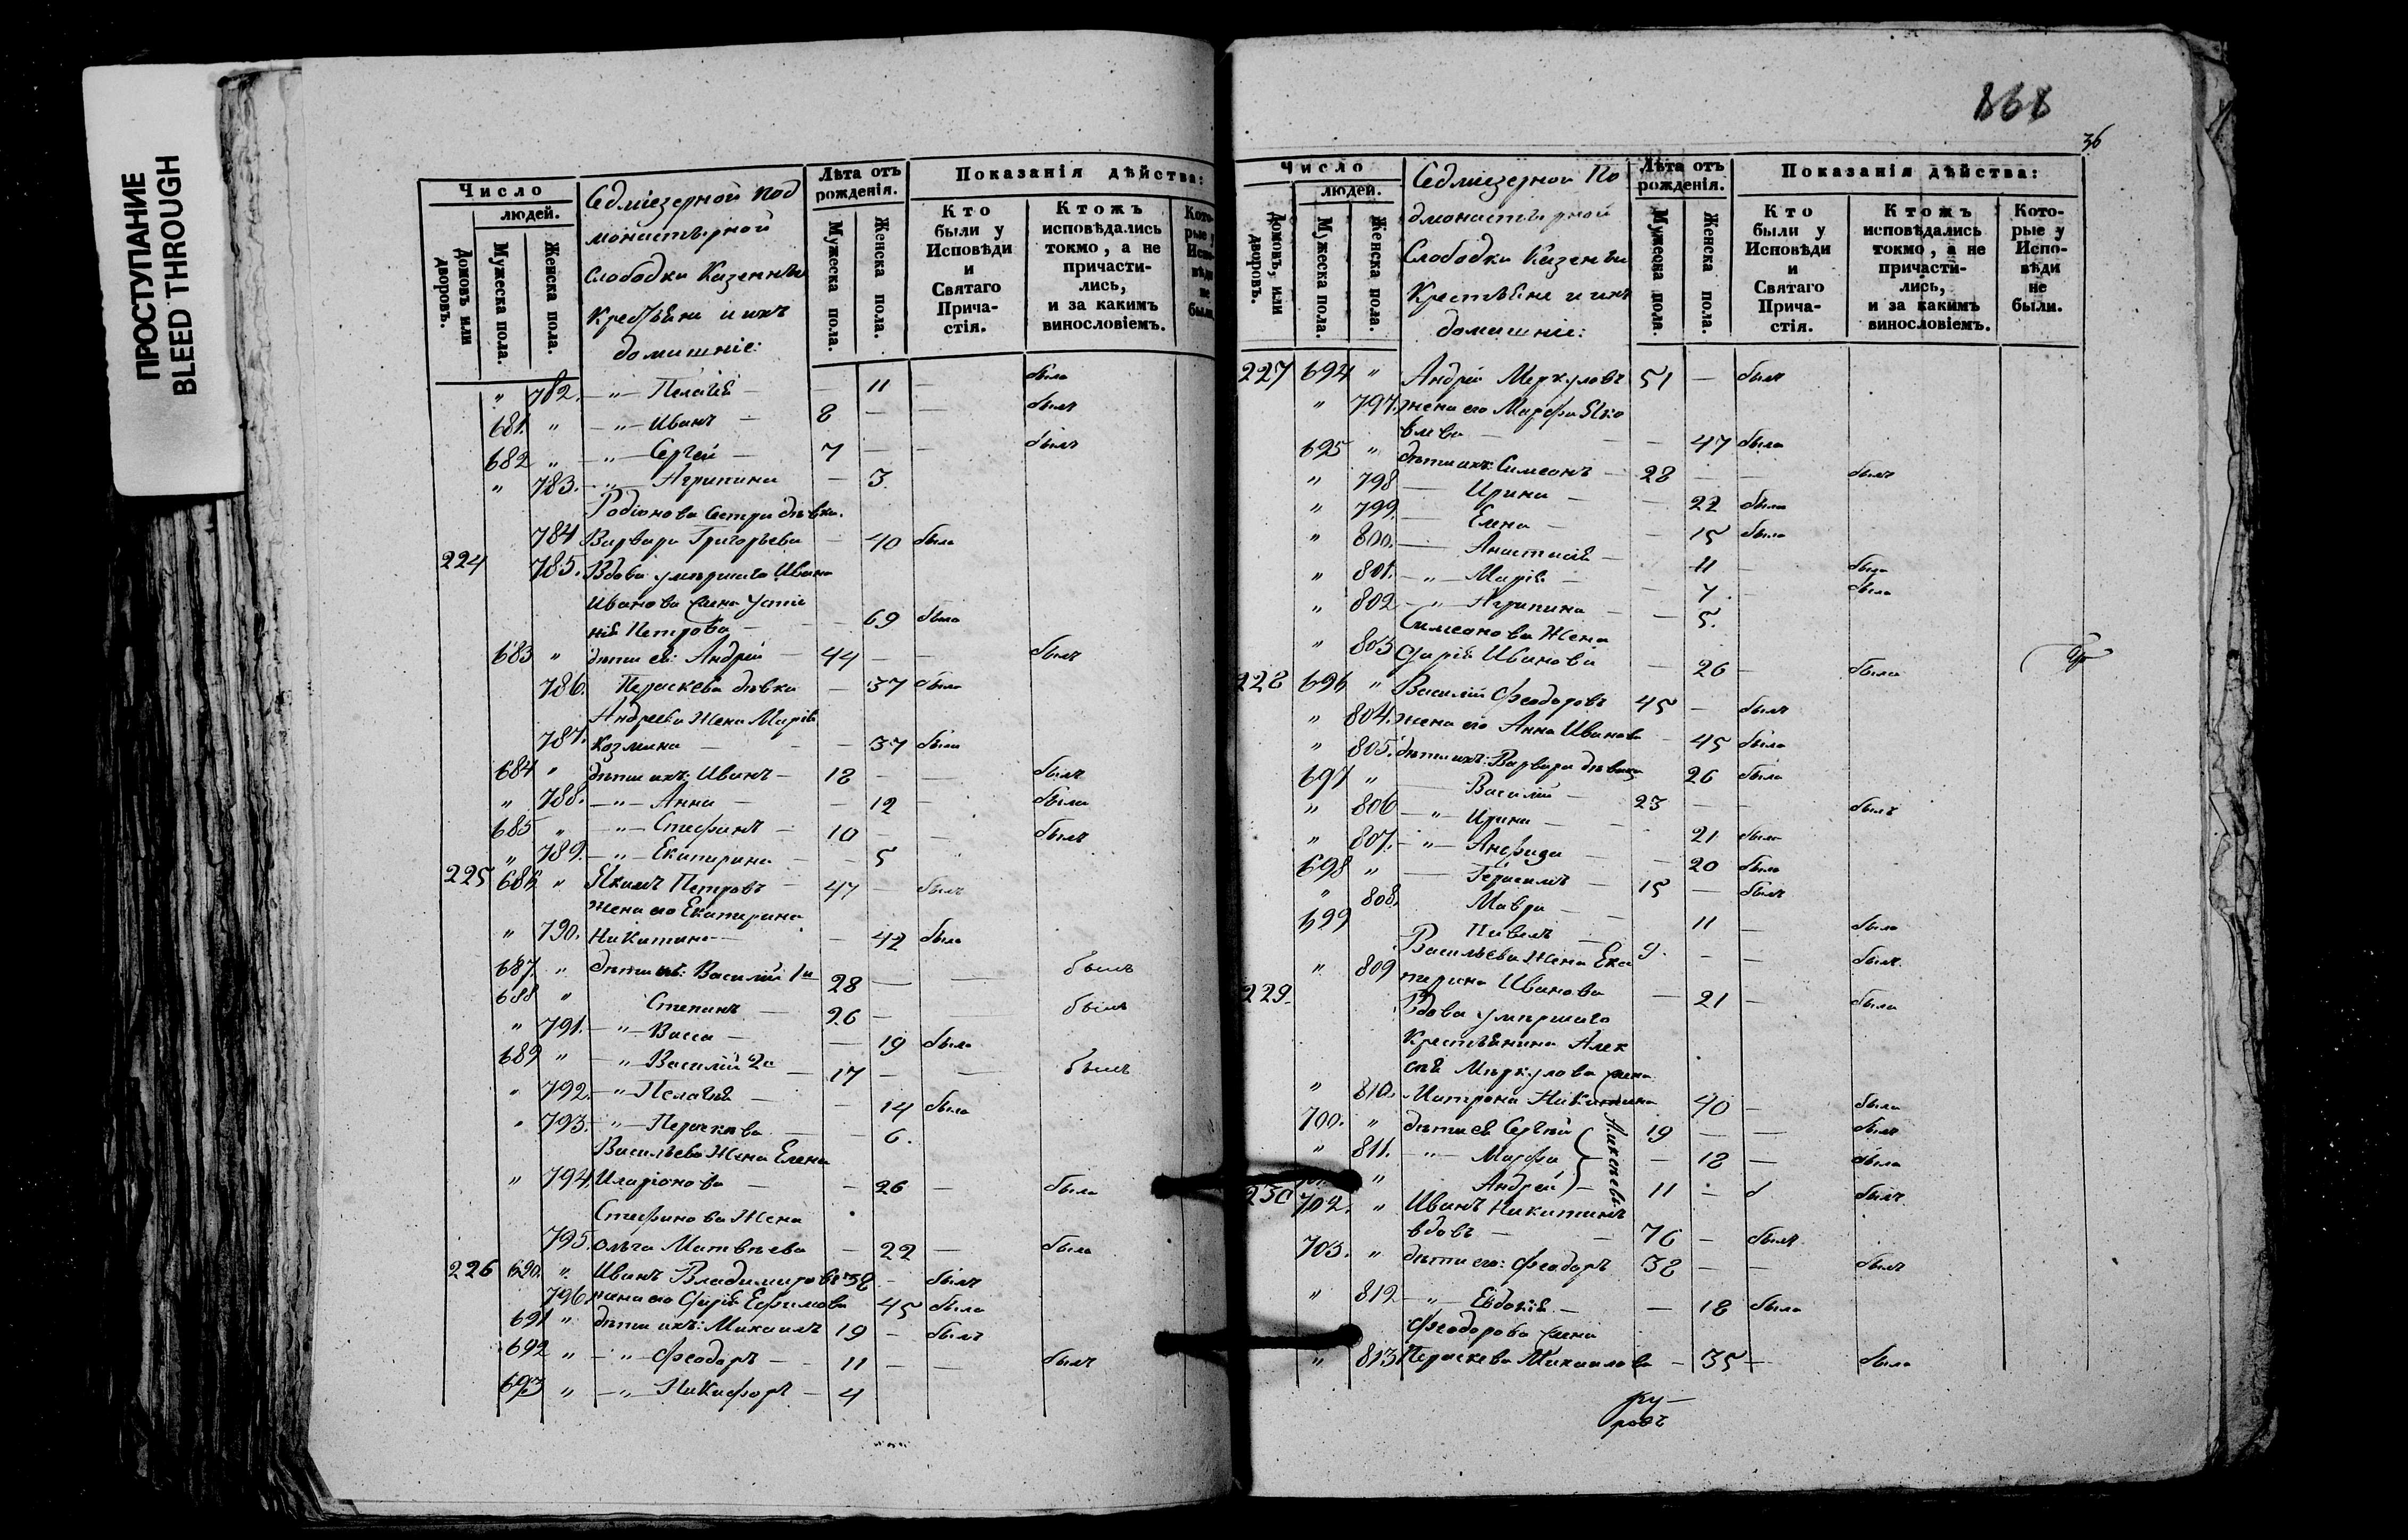 ПРОСТУПАНИЕ
BLEED THROUGH
Число
людей.
Домовъ или дворовъ.
Мужеска пола.
Женска пола.
Седміезерной Под
монастырной
Слободки Казенны
Крестьяни и ихъ
домашніе:
Лѣта отъ рожденія.
Мужеска пола.
Женска пола.
Показанія дѣйства:
Кто были у Исповѣди и Святаго Прича-стія.
Ктожъ исповѣдались токмо, а не причасти-лись, и за какимъ винословіемъ.
" 782. — " — Пелагія — — 11 — была
681. " — " — Иванъ — 8 — — былъ
682 " — " — Сергей — 7 — — былъ
" 783. — " — Агрипина — 3.
Родіонова Сестра дѣвка.
784 Варвара Григорьева — 40 была
224 785. Вдова умершаго Ивана
Иванова жена Усти
нія Петрова — — 69 была
683 " дѣти ея: Андрей — 44 — — былъ
786. Параскева дѣвка — 37 была
Андреева Жена Марія
787. Козмина — — 37 была
684 " дѣти ихъ: Иванъ — 18 — — былъ
" 788. — " — Анна — — 12 — была
685 " — " — Стефанъ — 10 — — былъ
" 789. — " — Екатерина — — 5
225 686 " Якимъ Петровъ — 47 — былъ
жена его Екатерина
" 790. Никитина — — 42 была
687. " дѣти ихъ: Василій 1й 28 — — былъ
688 " Степанъ — 26 — — былъ
" 791. — " — Васса — — 19 была
689 " — " Василій 2й — 17 — — былъ
" 792. — " — Пелагія — — 14 была
" 793. — " — Параскева — — 6.
Васильева Жена Елена
" 794. Иларіонова — — 26 — была
Стефанова Жена
795. Ольга Матвѣева — 22 — была
226 690. " Иванъ Владимировъ 38 — былъ
796. жена его Дарія Ефимова 45 была
691 " дѣти ихъ: Михаилъ 19 — былъ
692 " — " — Феодоръ — 11 — — былъ
693 " — " — Никифоръ — 4
868
36
Число
людей.
Домовъ, или дворовъ.
Мужеска пола.
Женска пола.
Седміезерной По
дмонастырной
Слободки Казенны
Крестьяне и ихъ
домашніе:
Лѣта отъ рожденія.
Мужеска пола.
Женска пола.
Показанія дѣйства:
Кто были у Исповѣди и Святаго Прича-стія.
Ктожъ исповѣдались токмо, а не причасти-лись, и за какимъ винословіемъ.
Кото-рые у Испо-вѣди не были.
227 694 " Андрей Меркуловъ 51 — былъ
" 797. жена его Марфа Яко
влева — — 47 была
695 " дѣти ихъ: Симеонъ — 28 — — былъ
" 798 — Ирина — — 22 была
" 799. — Елена — — 15 была
" 800. — Анастасія — — 11 — была
" 801. — " — Марія — — 7. — была
" 802 — " — Агрипина — — 5.
Симеонова Жена
" 803 Дарія Иванова — 26 — была
228 696 " Василій Феодоровъ 45 — былъ
" 804. жена его Анна Иванова — 45 была
" 805. дѣти ихъ: Варвара дѣвица 26 была
697 " — Василій — 23 — — былъ
" 806 — " — Ирина — 21 была
" 807. — " — Анфиза — — 20 была
698 " — Герасимъ — 15 — былъ
" 808. Мавра — — 11 — была
699 Павелъ — 9. — — былъ
Васильева Жена Ека
" 809 терина Иванова — 21 — была
229. Вдова умершаго
Крестьянина Алек
сѣя Меркулова жена
" 810. Матрона Никитина 40 — была
700. " дѣти ея Сергѣй 19 — — былъ
" 811. — " — Марфа — 18 — была
" Андрей — 11 — былъ
Алексѣевы
230 702. " Иванъ Никитинъ
вдовъ — — 76 — былъ
703. " дѣти его: Феодоръ 38 — — былъ
" 812 — " — Евдокія — — 18 была
Феодорова жена
" 813 Параскева Михаилова — 35 — была